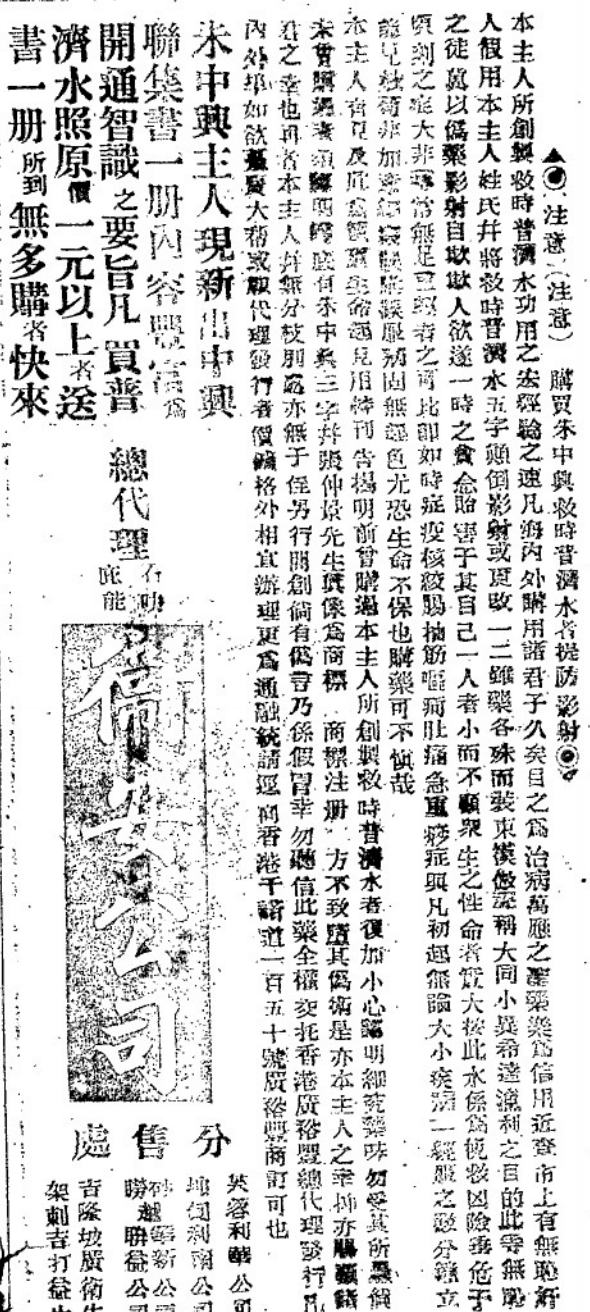 ▲◉注意(注意)　購買朱中興救時普濟水者提防影射◉
本主人所創製救時普濟水功用之宏經驗之速凡海內外購用諸君子久矣目之為治病萬應之聖藥樂為信用近查市上有無恥奸
人假用本主人姓氏幷將救時普濟水五字顛倒影射或更改一二雖藥各殊而裝束模倣認稱大同小異希達漁利之目的此等無恥
之徒冀以偽藥影射自欺欺人欲遂一時之貪念貽害于其自己一人者小而不顧衆生之性命者實大按此水係為挽救凶險垂危于
頃刻之症大非尋常無足重輕者之可比即如時症疫核絞腸抽筋嘔瀉肚痛急重痧症與凡初起無論大小疾病一經服之
尤恐生命不保也購藥可不慎哉
本主人有見及此為衛重生命起見用特刊告揭明前曾購過本主人所創製救時普濟水者復加小心認明細究藥味勿受其所愚倘
未曾購過者須認明樽底有朱中興三字幷張仲景先生真像為商標 商標注册 方不致墮其偽術是亦本主人之幸抑亦購藥諸
君之幸也再者本主人幷無分枝別處亦無子侄另行開創倘有偽言乃係假冒幸勿聽信此藥全權交托香港廣裕豐總代理發行凡
內外埠如欲躉買大帮或取代理發行者價錢格外相宜辦理更為通融統請逕向香港干諾道一百五十號廣裕豐商訂可也
朱中興主人現新出中興
聯集書一册內容豐富為
開通智識之要旨凡買普
濟水照原價一元以上者送
書一册所到無多購者快來
總代理
衛安公司
分售處
芙蓉利華公司
埠國利南公司
吉隆坡廣衛生
架剌吉打益